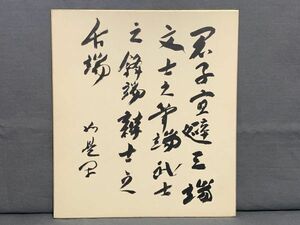 君子宜避三端
文士之筆端武士
之鋒端辯士之
舌端
如是閑